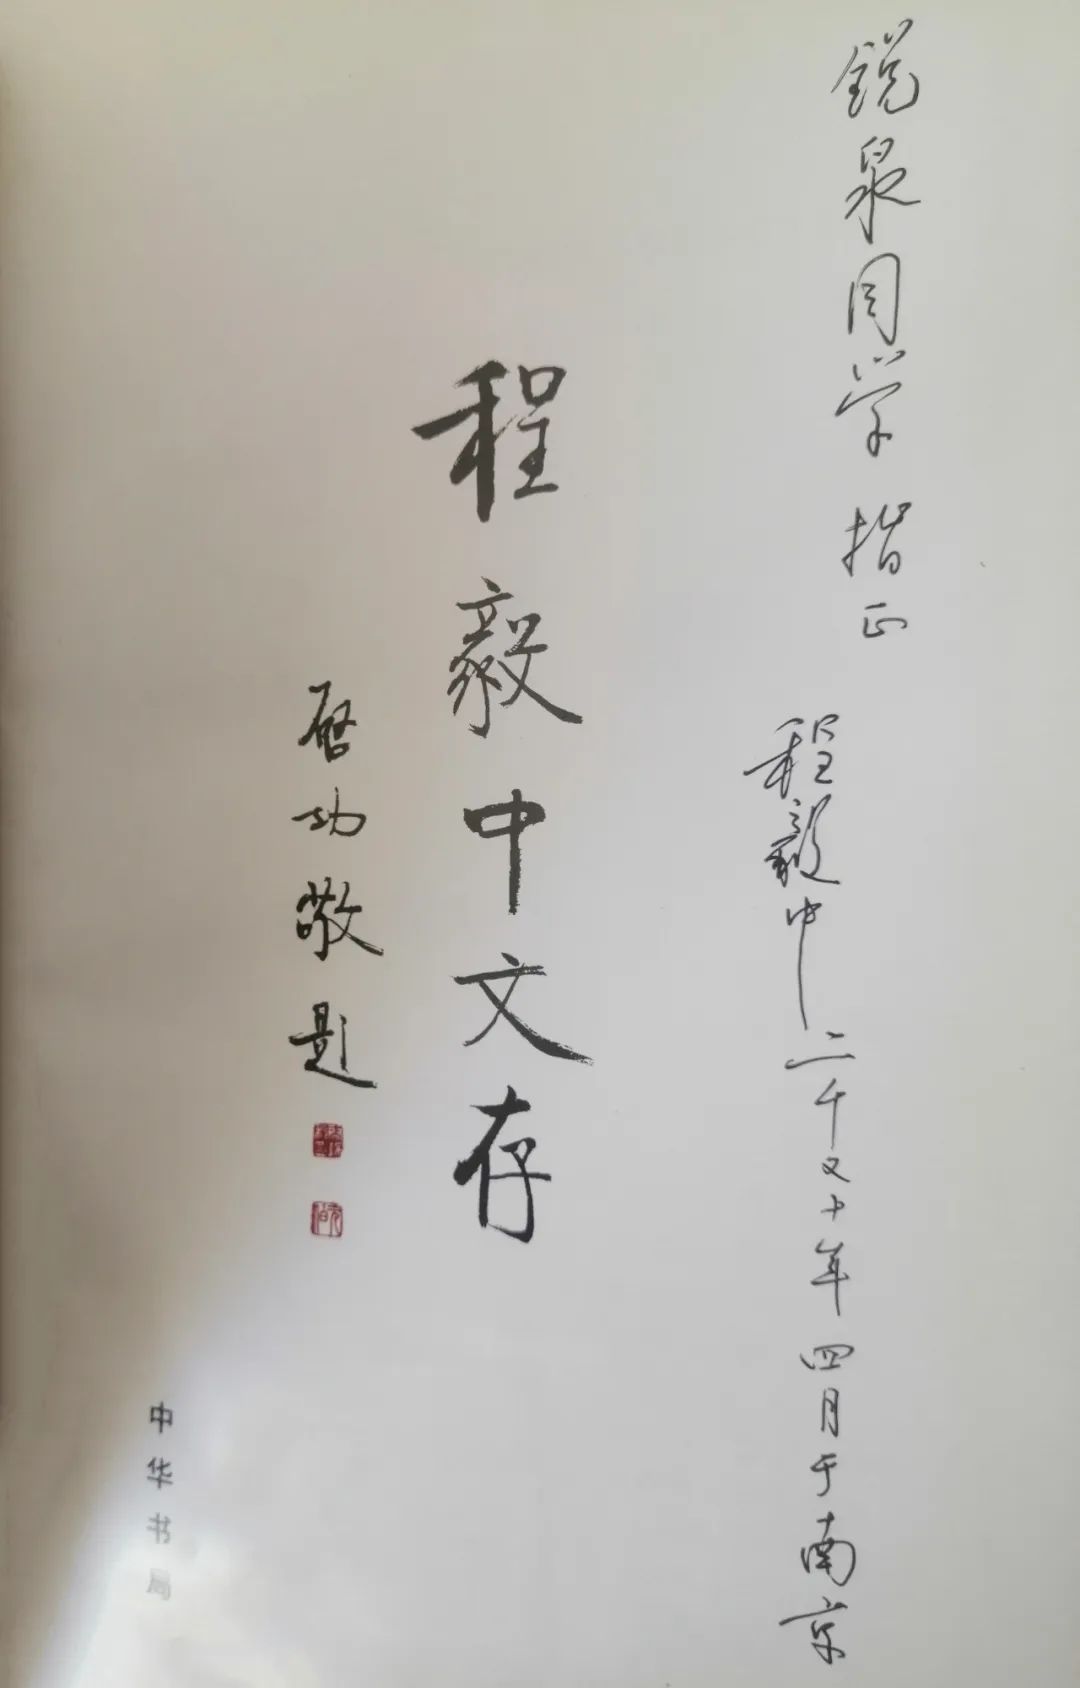 锐泉同学 指正
程毅中 二千又十年四月于南京
程毅中文存
启功敬题
中华书局